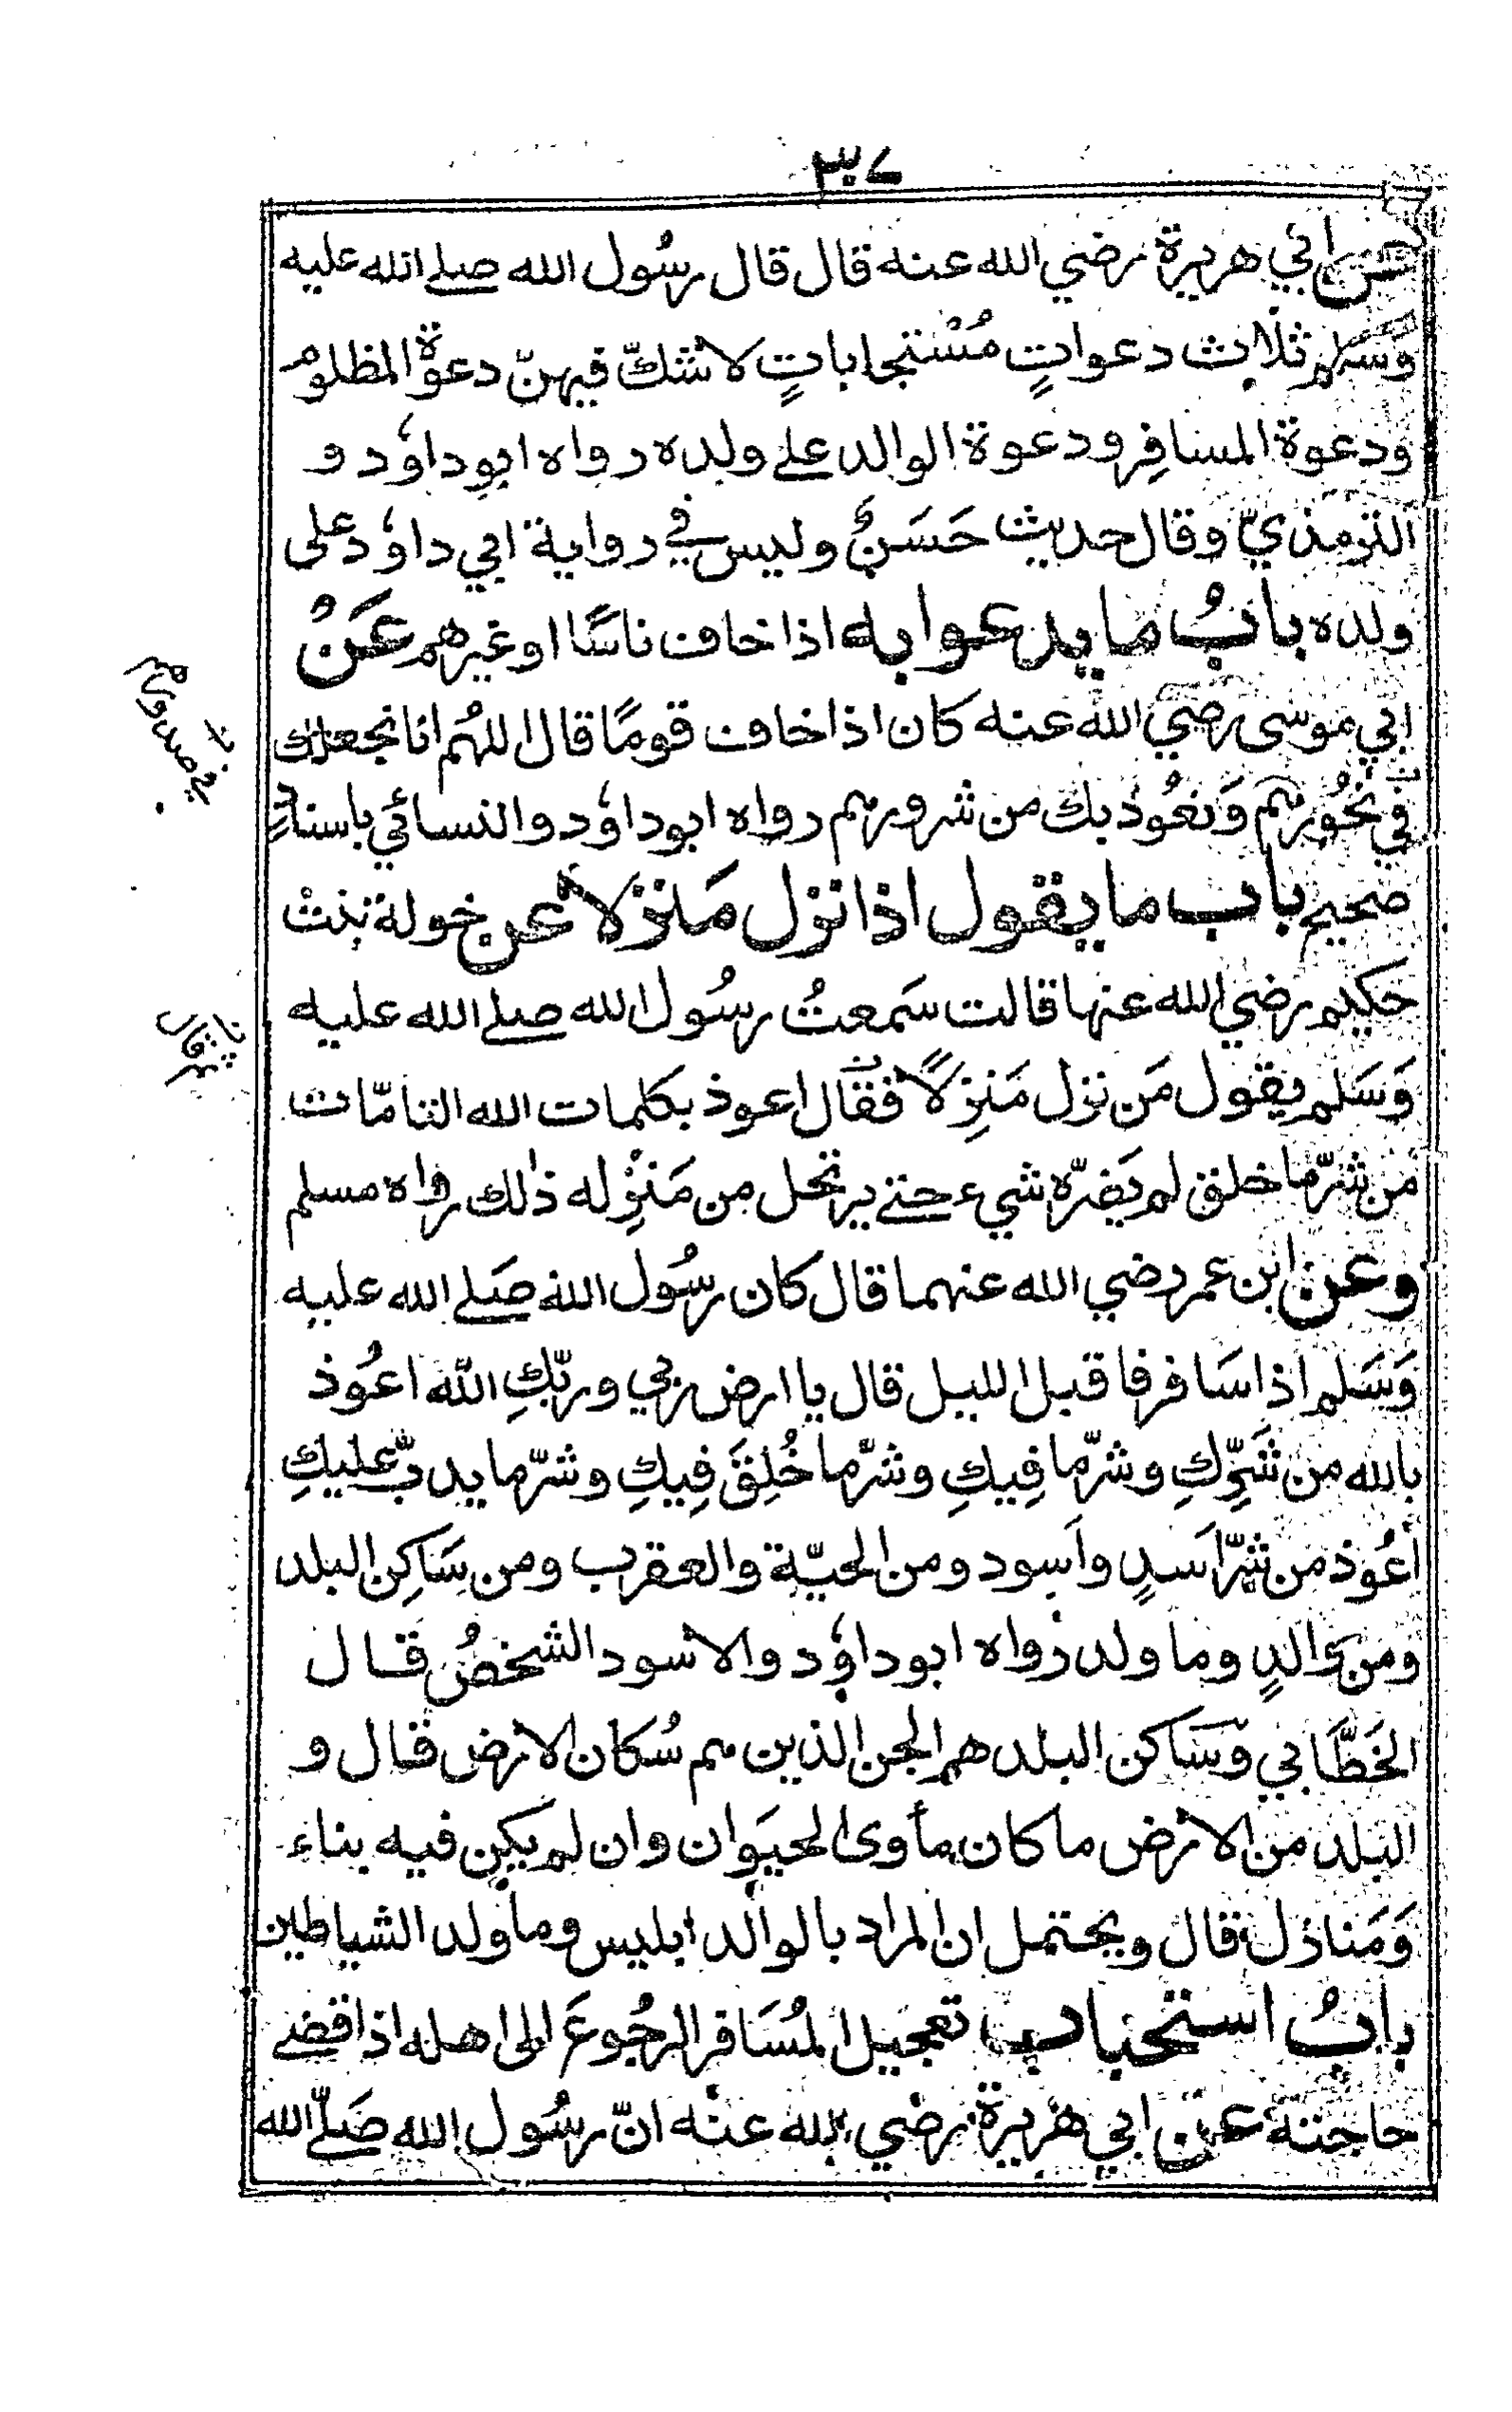 ٣٠٧
عن ابي هريرة رضي الله عنه قال قال رسُول الله صلے الله عليه
وَسَلم ثلاث دعواتٍ مُسْتجاباتٍ لا شكّ فيهنّ دعوة المظلوم
ودعوة المسافِر ودعوة الوالد علے ولده رواه ابوداؤد و
الترمذيّ وقال حديث حَسَنٌ وليس في رواية ابي داؤد على
ولده بابُ ما يدعوا به اذا خاف ناسًا او غيرهم عَنْ
ابي موسى رضي الله عنه كان اذا خاف قومًا قال اللهُم انا نجعلك
في نحُورهم وَنعُوذ بك من شرورهم رواه ابوداؤد والنسائي باسنادٍ
صحيح باب ما يقول اذا نزل مَنزلا عن خولة بنتْ
حكيم رضي الله عنها قالت سَمعتُ رسُول الله صلے الله عليه
وَسَلم يقول مَن نزل مَنزِلًا فقال اعوذ بكلمات الله التامّات
من شرّ ما خلق لم يضرّه شيء حتے يرتحل من مَنزِله ذلك رواه مسلم
وعن ابن عمر رضي الله عنهما قال كان رسُول الله صَلے الله عليه
وَسَلم اذا سَافر فاقبل الليل قال يا ارض ربي وربّكِ الله اعُوذ
بالله من شَرِّكِ وشرّ ما فِيكِ وشرّ ما خُلِقَ فِيكِ وشرّ ما يدبّ عليكِ
أعُوذ من شرّ اَسدٍ واَسود ومن الحيّة والعقرب ومن سَاكِن البلد
ومن والدٍ وما ولد رواه ابوداؤد والاسود الشخصُ قال
الخَطَّابي وسَاكن البلد هم الجن الذين هم سُكان الارض قال و
البلد من الارض ما كان مأوى الحيَوان وان لم يكن فيه بناء
وَمَنازل قال ويحتمل ان المراد بالوالد ابليس وما ولد الشياطين
بابُ استحباب تعجيل المُسَافر الرجُوعَ الى اهله اذا قضے
حاجته عن ابي هريرة رضي الله عنه انّ رسُول الله صَلّے الله